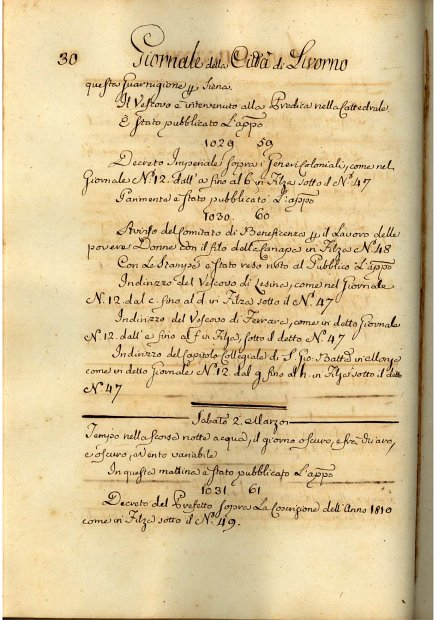 30 Giornale della Città di Livorno
questa Guarnigione p Siena.
Il Vescovo è intervenuto alla Predica nella Cattedrale
È stato pubblicato L'appo
1029 59
Decreto Imperiale sopra i Generi Coloniali, come nel
Giornale N. 12. dall' a fino al b in Filza sotto il N. 47
Parimente è stato pubblicato L'appo
1030. 60
Avviso del Comitato di Beneficenza p il Lavoro delle
povere Donne con il filo dalla Canapa in Filza N. 48
Con Le Stampe è stato reso noto al Pubblico L'appo
Indirizzo del Vescovo di Lesina, come nel Giornale
N. 12. dal c. fino al d in Filza sotto il N. 47
Indirizzo del Vescovo di Ferrara, come in detto Giornale
N. 12. dall' e fino al f in Filza, sotto il detto N. 47
Indirizzo del Capitolo Collegiale di S. Gio. Batta in
come in detto Giornale N. 12 dal g fino al h. in Filza sotto il detto
N. 47
Sabato 2. Marzo
Tempo nella scorsa notte acqua, il giorno oscuro, e
e oscuro, vento variabile
In questa mattina è stato pubblicato L'appo
1031. 61
Decreto del Prefetto sopra La Coscrizione dell'Anno 1810
come in Filza sotto il N. 49.